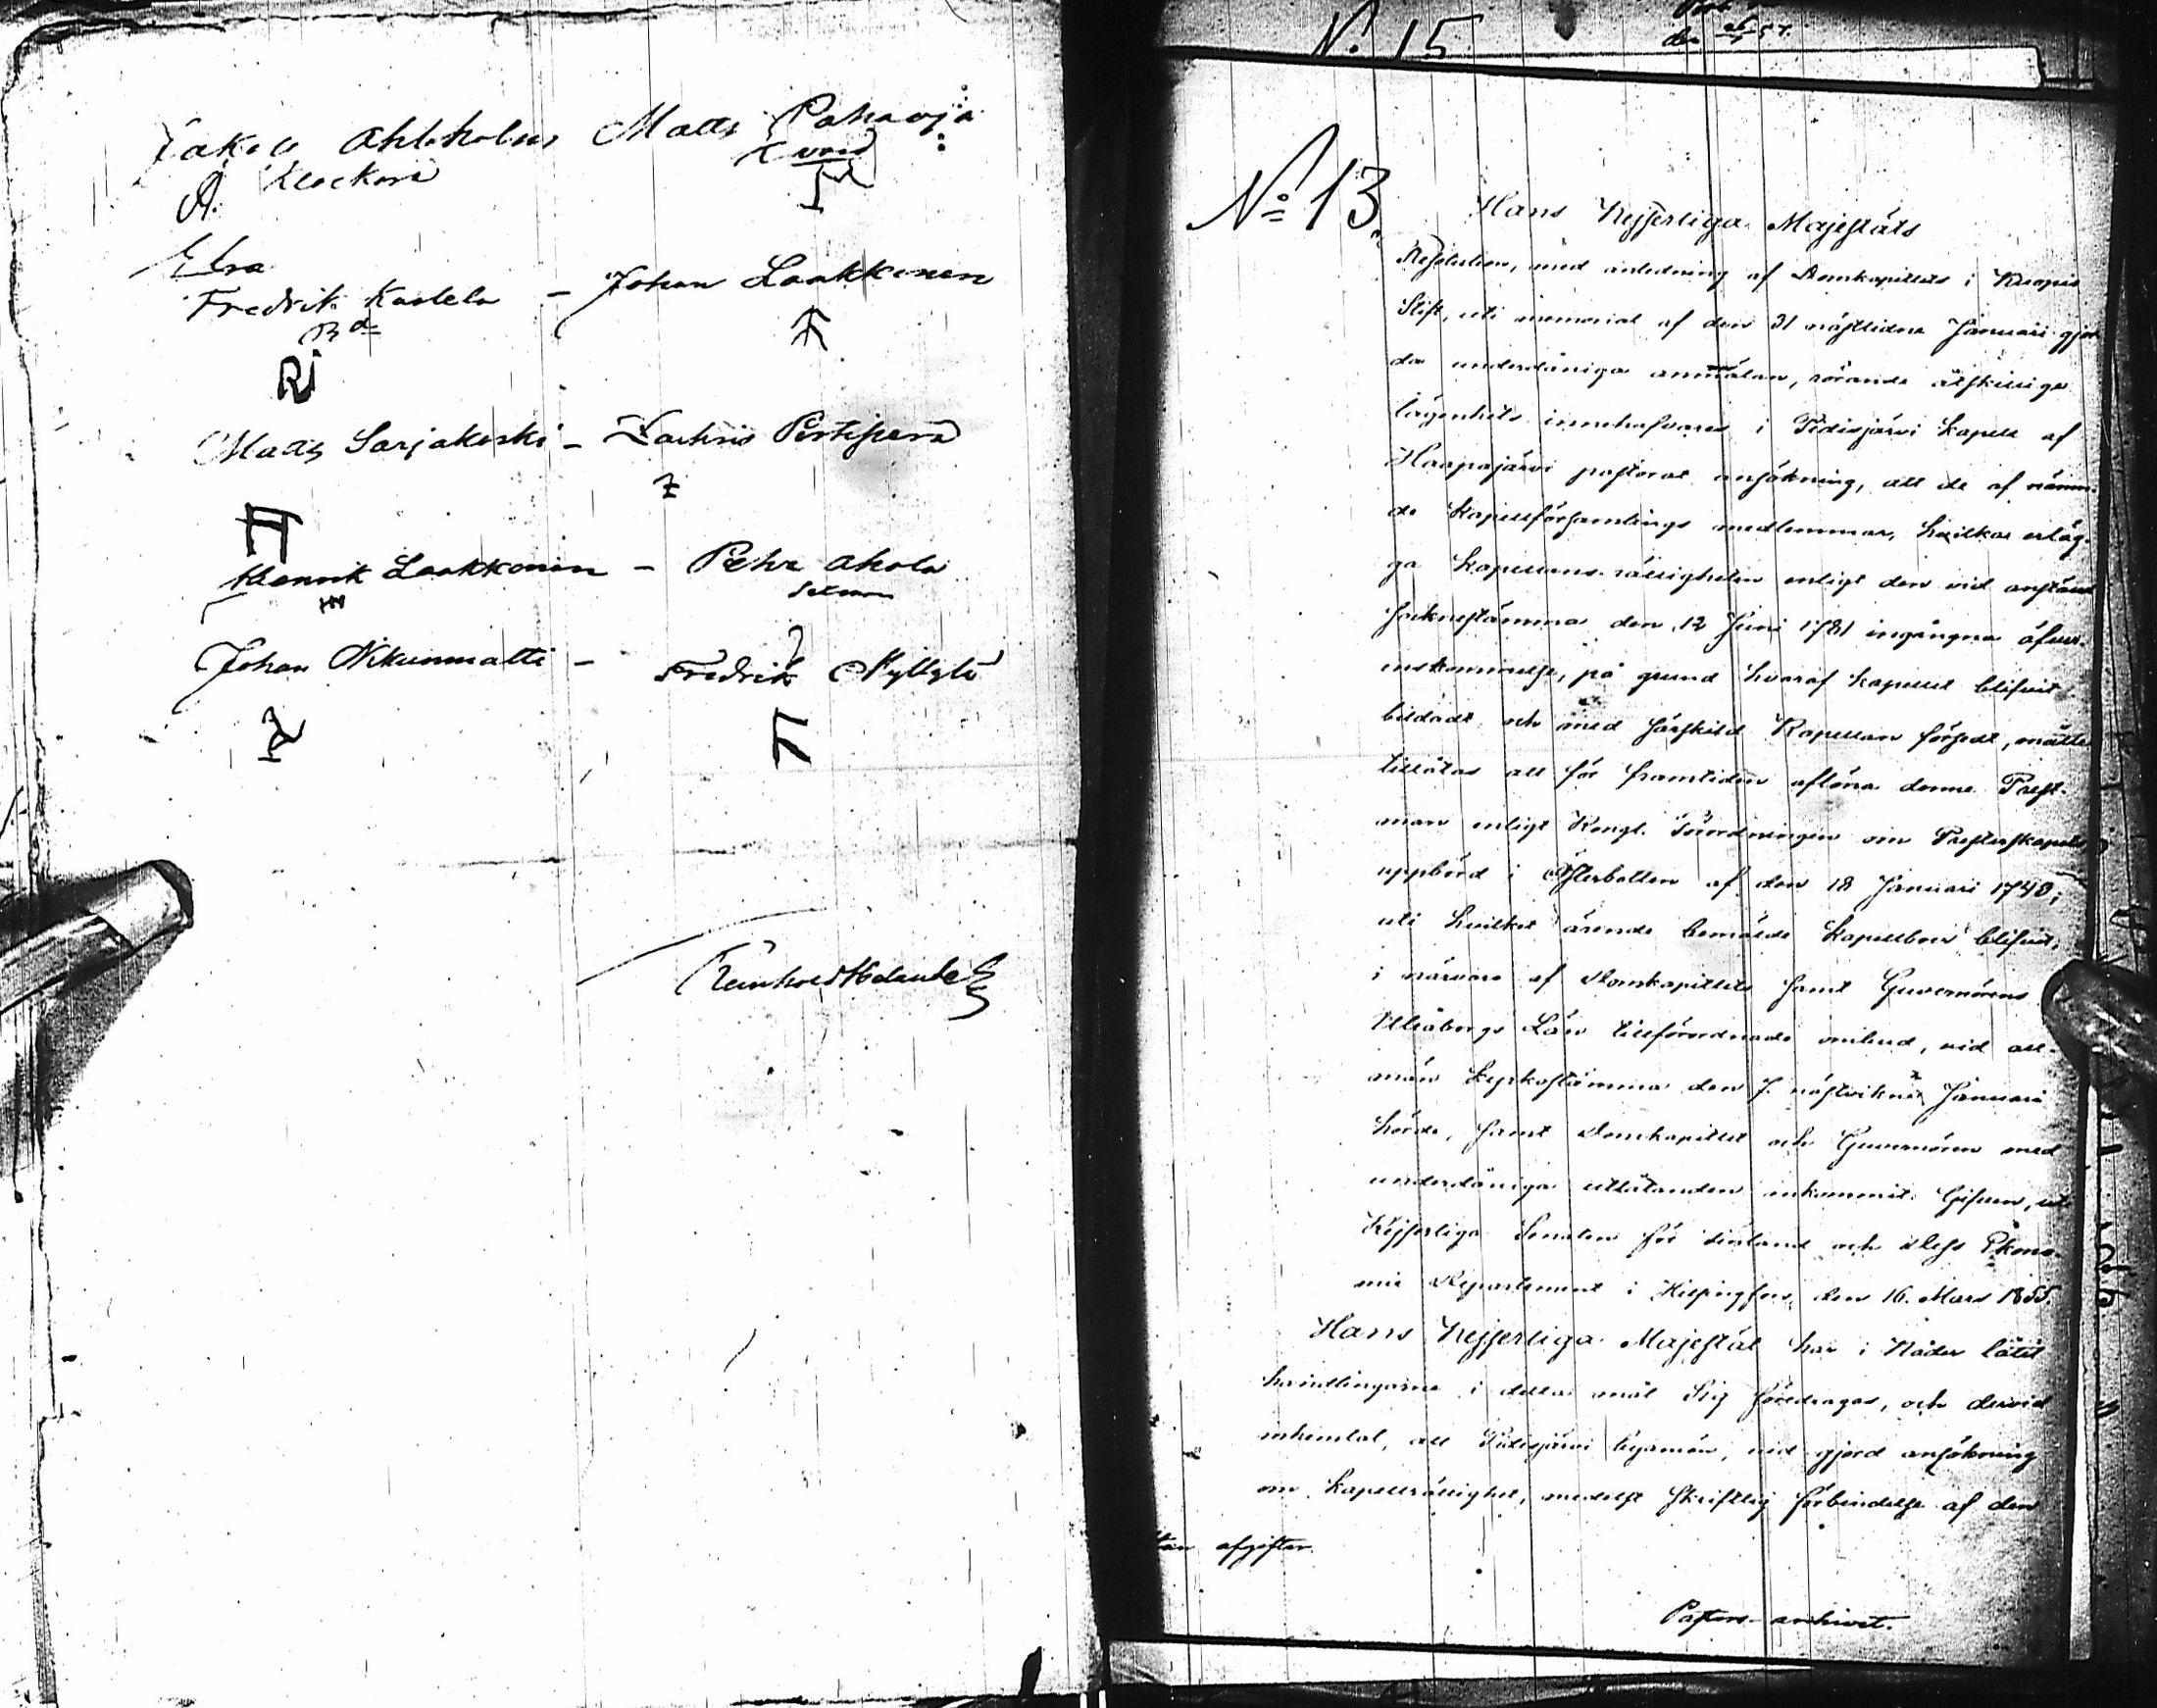 Jakob Ahlholm Matts Pahaoja
Klockare
A.
Esra
Fredrik Kastela - Johan Laakkonen
Matts Sarjakoski - Zachris Pirtiperä
Z
Henrik Laakkonen - Pehr Ahola
Johan Nikunmatti - Fredrik Myllylä
Reinhold Helander
No 15
No 13.
Hans Kejserliga Majestäts
Resolution, med anledning af Domkapitlets i Kuopio
Stift, uti memorial af den 31 nästlidne Januari gjor-
da underdåniga anmälan, rörande åtskillige
lägenhets innehafvares i Pidisjärvi kapell af
Haapajärvi pastorat ansökning, att de af nämn-
de Kapellförsamlings medlemmar, hvilka erläg-
ga Kapellans rättigheten enligt den vid anstäld
socknestämma den 12 Juni 1781 ingångna öfver-
enskommelse, på grund hvaraf kapellet blifvit
bildadt och med särskild Kapellan försedt, måtte
tillåtas att för framtiden aflöna denne Prest-
man enligt Kongl. Förordningen om Presterskapets
uppbörd i Österbotten af den 18 Januari 1748;
uti hvilket ärende bemälde Kapellboer blifvit,
i närvaro af Domkapitlets samt Guvernörens
Uleåborgs Län tillförordnade ombud, vid all-
män kyrkostämma den 7. nästvikne Januari
hörde, samt Domkapitlet och Guvernören med
underdåniga utlåtanden inkommit. Gifven, uti
Kejserliga Senaten för Finland och dess Ekono-
mie Departement i Helsingfors, den 16. Mars 1855.
Hans Kejserliga Majestät har i Nåder låtit
handlingarne i detta mål Sig föredragas, och dervid
inhemtat, att Pidisjärvi byamän, vid gjord ansökning
om kapellrättighet, medelst skriftlig förbindelse af den
afgifter.
Pastors-arkivet.